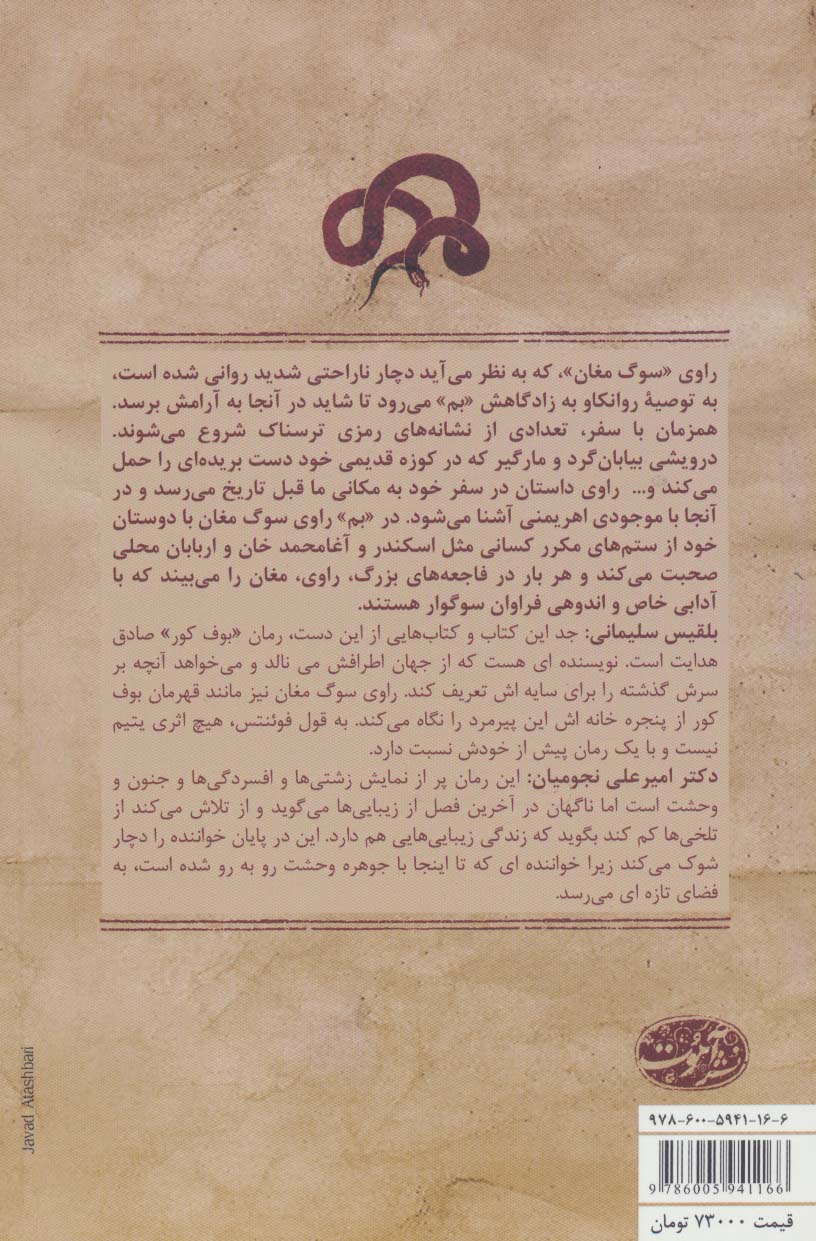 راوی «سوگ مغان»، که به نظر می‌آید دچار ناراحتی شدید روانی شده است،
به توصیهٔ روانکاو به زادگاهش «بم» می‌رود تا شاید در آنجا به آرامش برسد.
همزمان با سفر، تعدادی از نشانه‌های رمزی ترسناک شروع می‌شوند.
درویشی بیابان‌گرد و مارگیر که در کوزه قدیمی خود دست بریده‌ای را حمل
می‌کند و... راوی داستان در سفر خود به مکانی ما قبل تاریخ می‌رسد و در
آنجا با موجودی اهریمنی آشنا می‌شود. در «بم» راوی سوگ مغان با دوستان
خود از ستم‌های مکرر کسانی مثل اسکندر و آغامحمد خان و اربابان محلی
صحبت می‌کند و هر بار در فاجعه‌های بزرگ، راوی، مغان را می‌بیند که با
آدابی خاص و اندوهی فراوان سوگوار هستند.
بلقیس سلیمانی: جد این کتاب و کتاب‌هایی از این دست، رمان «بوف کور» صادق
هدایت است. نویسنده ای هست که از جهان اطرافش می نالد و می‌خواهد آنچه بر
سرش گذشته را برای سایه اش تعریف کند. راوی سوگ مغان نیز مانند قهرمان بوف
کور از پنجره خانه اش این پیرمرد را نگاه می‌کند. به قول فوئنتس، هیچ اثری یتیم
نیست و با یک رمان پیش از خودش نسبت دارد.
دکتر امیرعلی نجومیان: این رمان پر از نمایش زشتی‌ها و افسردگی‌ها و جنون و
وحشت است اما ناگهان در آخرین فصل از زیبایی‌ها می‌گوید و از تلاش می‌کند از
تلخی‌ها کم کند بگوید که زندگی زیبایی‌هایی هم دارد. این در پایان خواننده را دچار
شوک می‌کند زیرا خواننده ای که تا اینجا با جوهره وحشت رو به رو شده است، به
فضای تازه ای می‌رسد.
Javad Atashbari
نشر آموت
۹۷۸-۶۰۰-۵۹۴۱-۱۶-۶
9 786005 941166
قیمت ۷۳۰۰۰ تومان